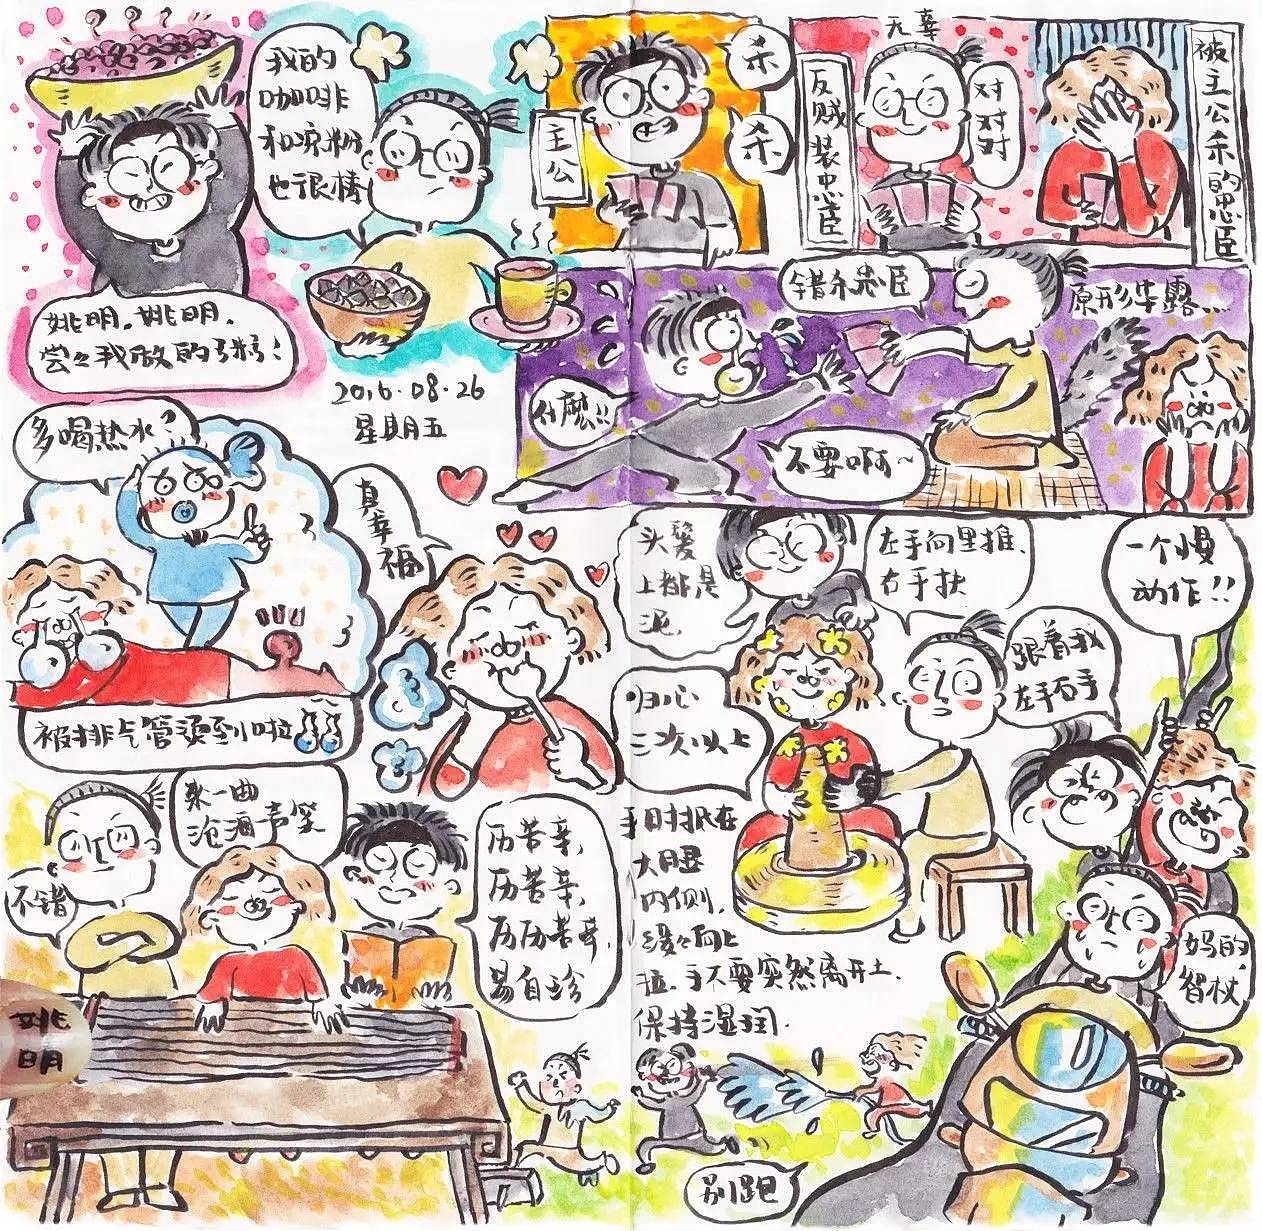 我的
咖啡
和凉粉
也很棒
姚明，姚明，
尝々我做的
2016.08.26
星期五
主公
杀
杀
反贼装忠臣
无辜
对对对
被主公杀的忠臣
错杀忠臣
原形毕露...
什麼!!
不要啊~
多喝热水
被排气管烫到啦
真幸福
头发
上排是
泥.
左手向里推、
右手扶
一个慢
动作!!
跟着我
左手右手
归心
三次以上
手日寸抵在
大腿
内侧.
缓々向上
拉.手不要突然离开土.
保持湿润.
来一曲
沧海一声笑
不错
历苦辛,
历苦辛,
历历苦辛,
易自珍
妈的
智杖
别跑
姚
明